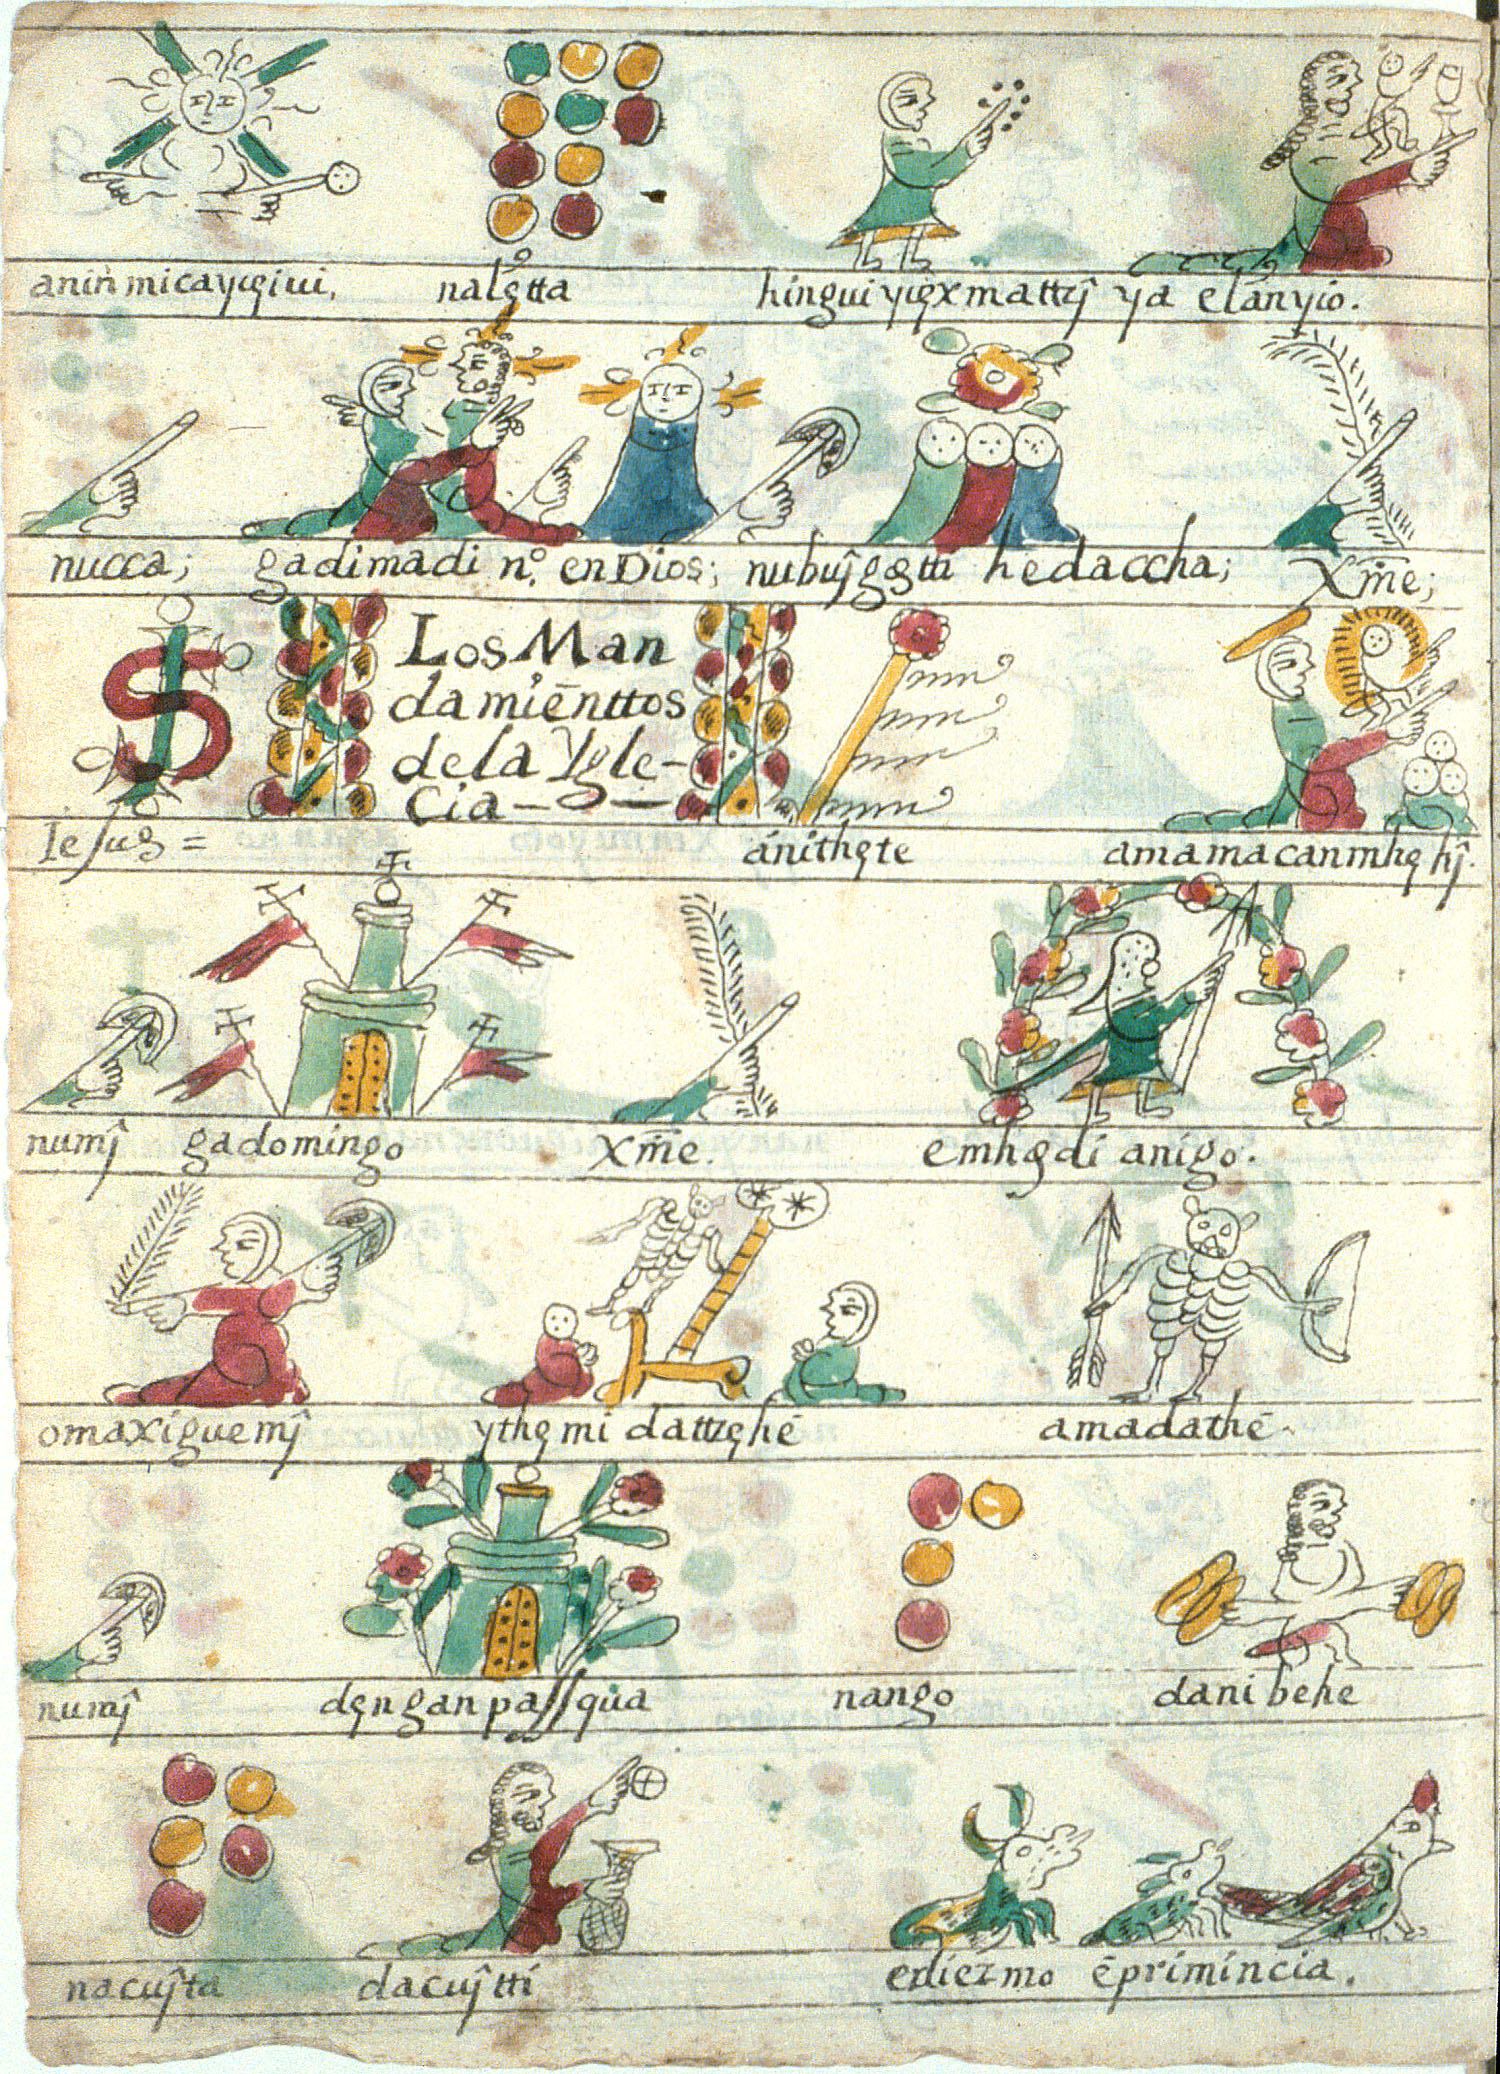 anin micayugiui, nalętta hingui yųęxmattzî ya elanyio.
nucca; gadimadi nº. en Dios; nubuĵgętti hedaccha; Xm̃e;
Los Man
damiēnttos
de la Ygle-
cia
Iesus = ánithęte amamacanmhęhĵ.
numĵ gadomingo Xm̃e. emhędi anigo.
omaxiguemĵ ythęmi dattzęhē amadathē
numĵ dęnganpassqua nango danibehe
nacuĵta dacuĵtti ediezmo ēprimincia.